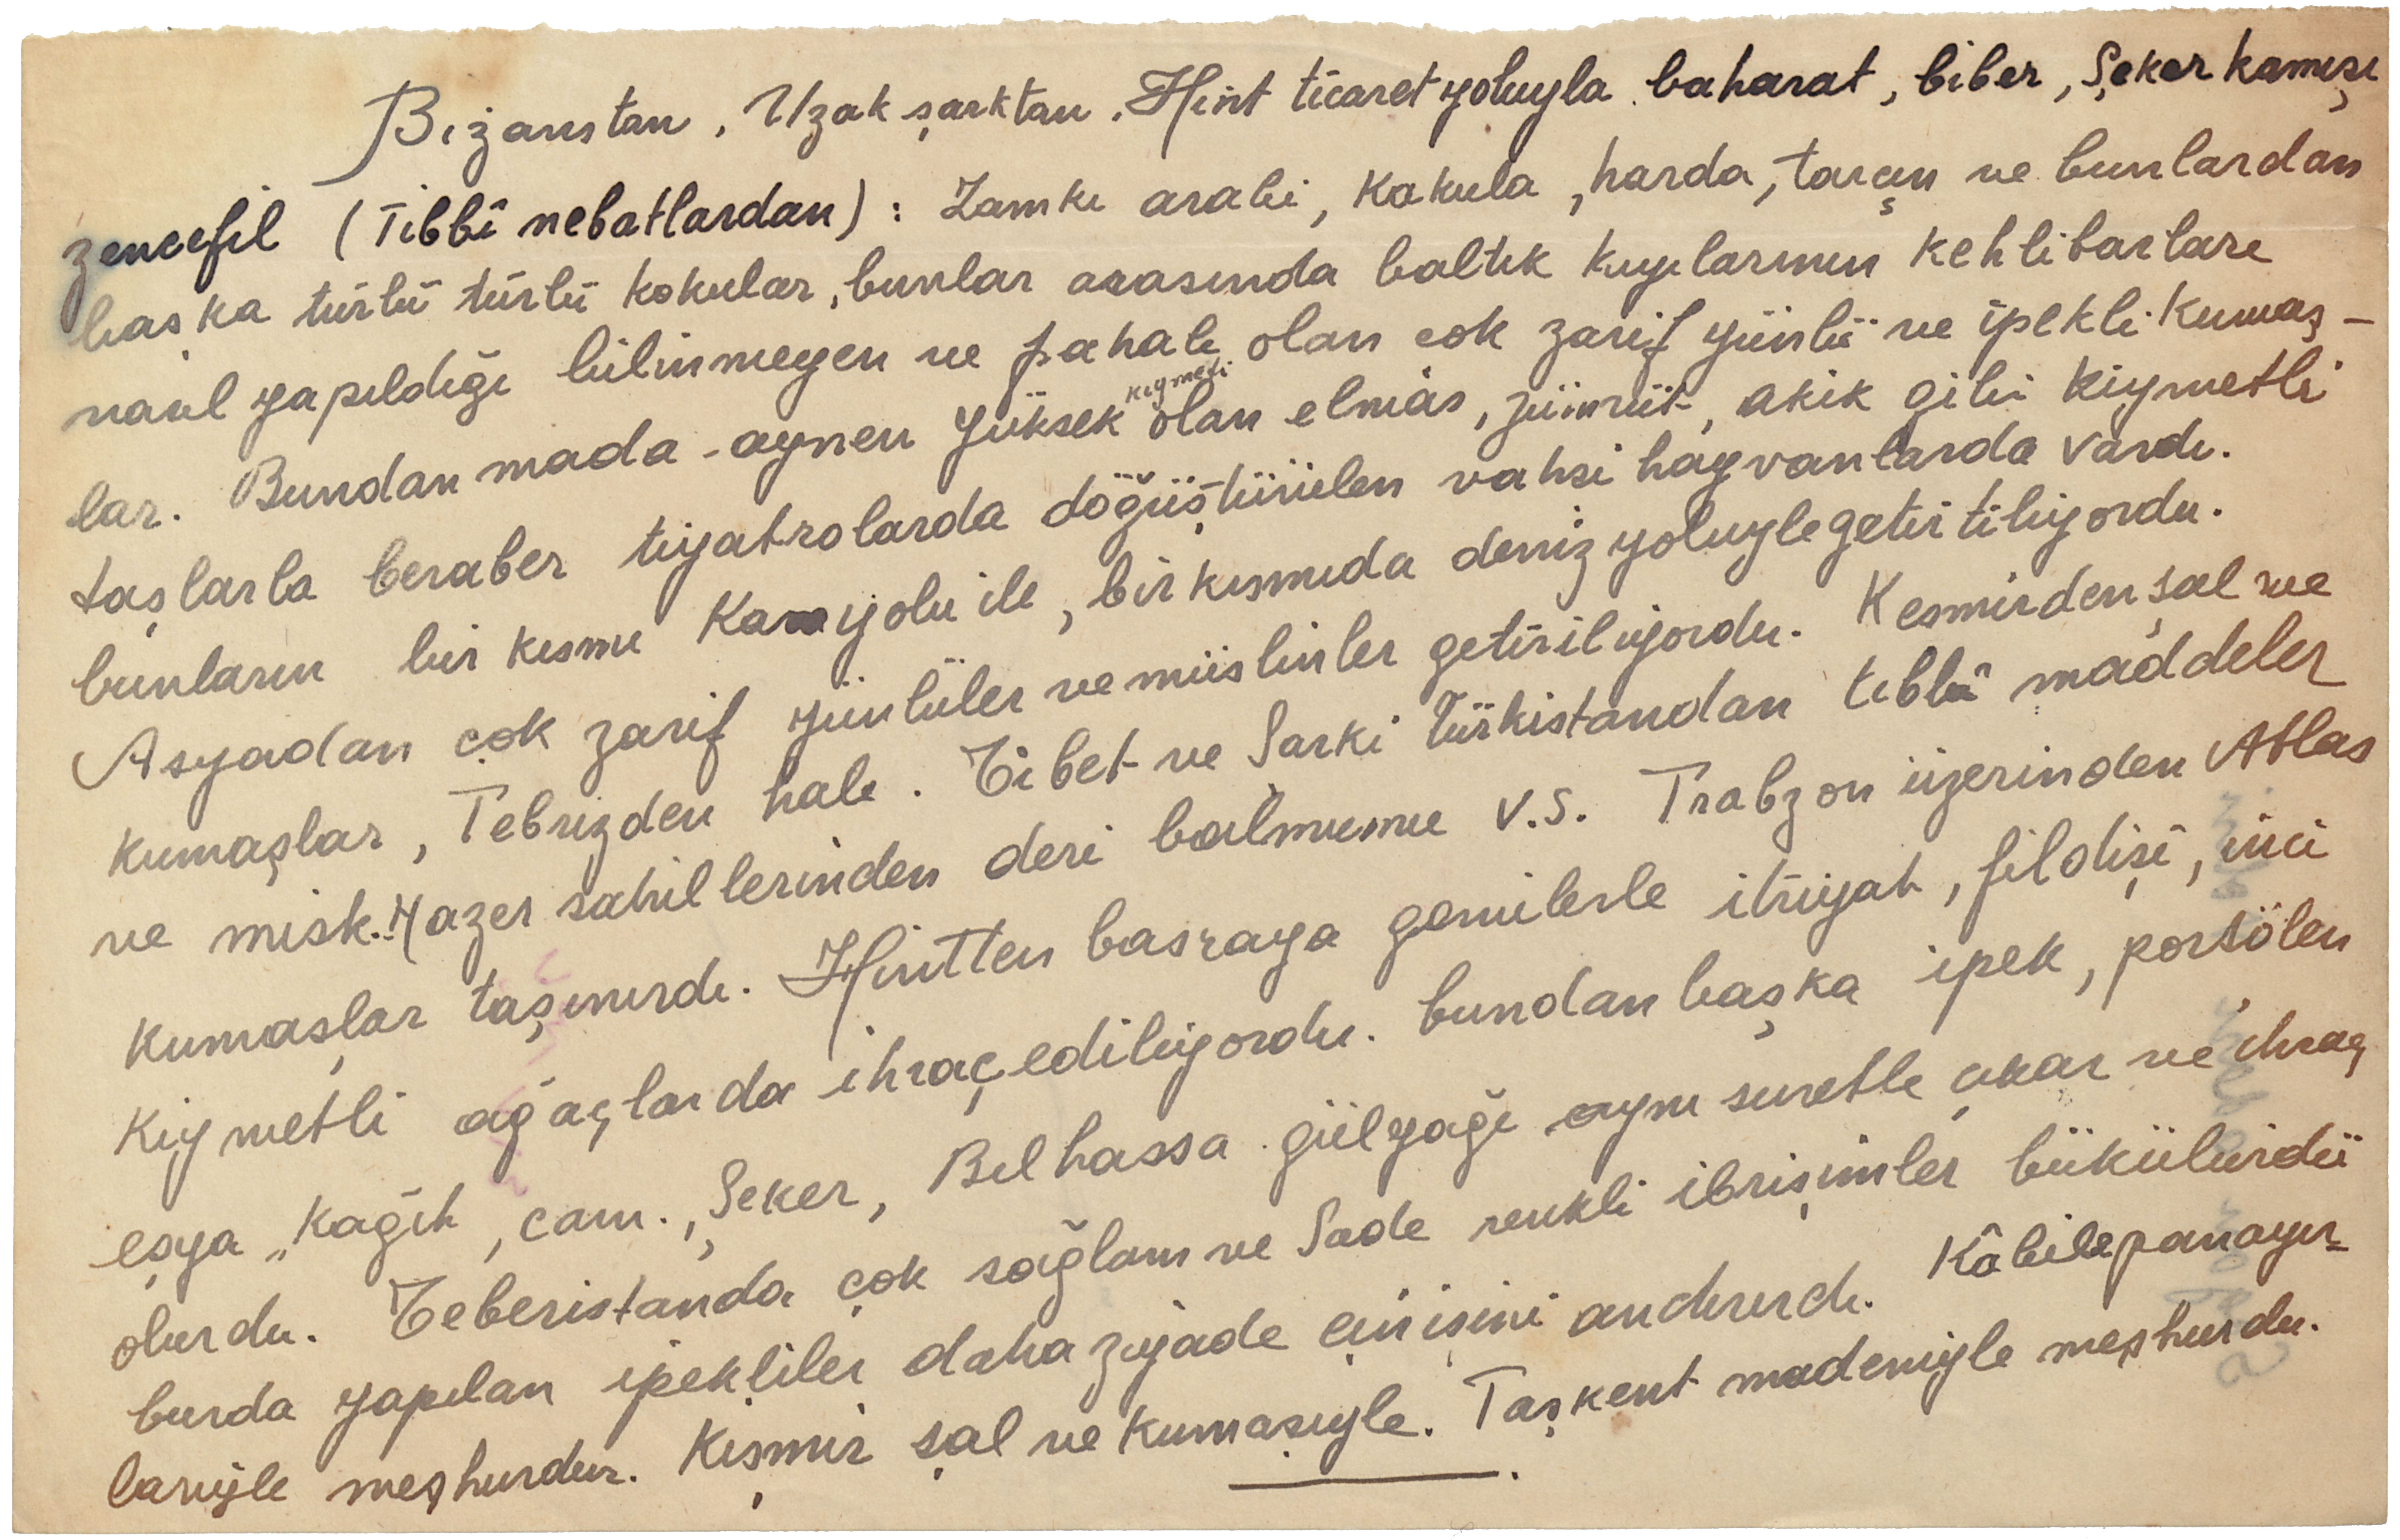 Bizanstan, Uzak şarktan, Hint ticaret yoluyla baharat, biber, Şeker kamışı
zencefil (Tibbî nebatlardan) : Zamkı arabi, Kakula, harda, taraçın ve bunlardan
başka türlü türlü kokular, bunlar arasında baltık kıyılarının kehlibarları
nasıl yapıldığı bilinmeyen ve pahalı olan cok zarif yünlü ve ipekli Kumaş-
lar. Bundan mada - aynen yüksek kıymeti olan elmas, zümrüt, akik gibi kiymetli
taşlarla beraber tiyatrolarda döğüştürülen vahsi hayvanlarda vardı.
bunların bir kısmı Kara yolu ile, bir kısmıda deniz yoluyle getirtiliyordu.
Asyadan çok zarif yünlüler ve müslinler getiriliyordu. Kesmirden şal ve
kumaşlar, Tebrizden halı. Tibet ve Şarki Türkistandan tıbbî maddeler
ve misk. Hazer sahillerinden deri balmumu v.s. Trabzon üzerinden Atlas
Kumaşlar taşınırdı. Hintten basraya gemilerle itriyat, fildişi, inci
Kiymetli ağaçlarda ihraç ediliyordu. bundan başka ipek, porsölen
eşya, Kağıt, cam., Şeker, Bilhassa gülyağı aynı suretle çıkar ve ihraç
olurdu. Teberistanda çok sağlam ve Sade renkli ibrişimler bükülürdü
burda yapılan ipekliler daha ziyade çin işini andırırdı. Kâbile panayır-
lariyle meşhurdur. Kişmir şal ve Kumaşıyle. Taşkent madeniyle meşhurdu.